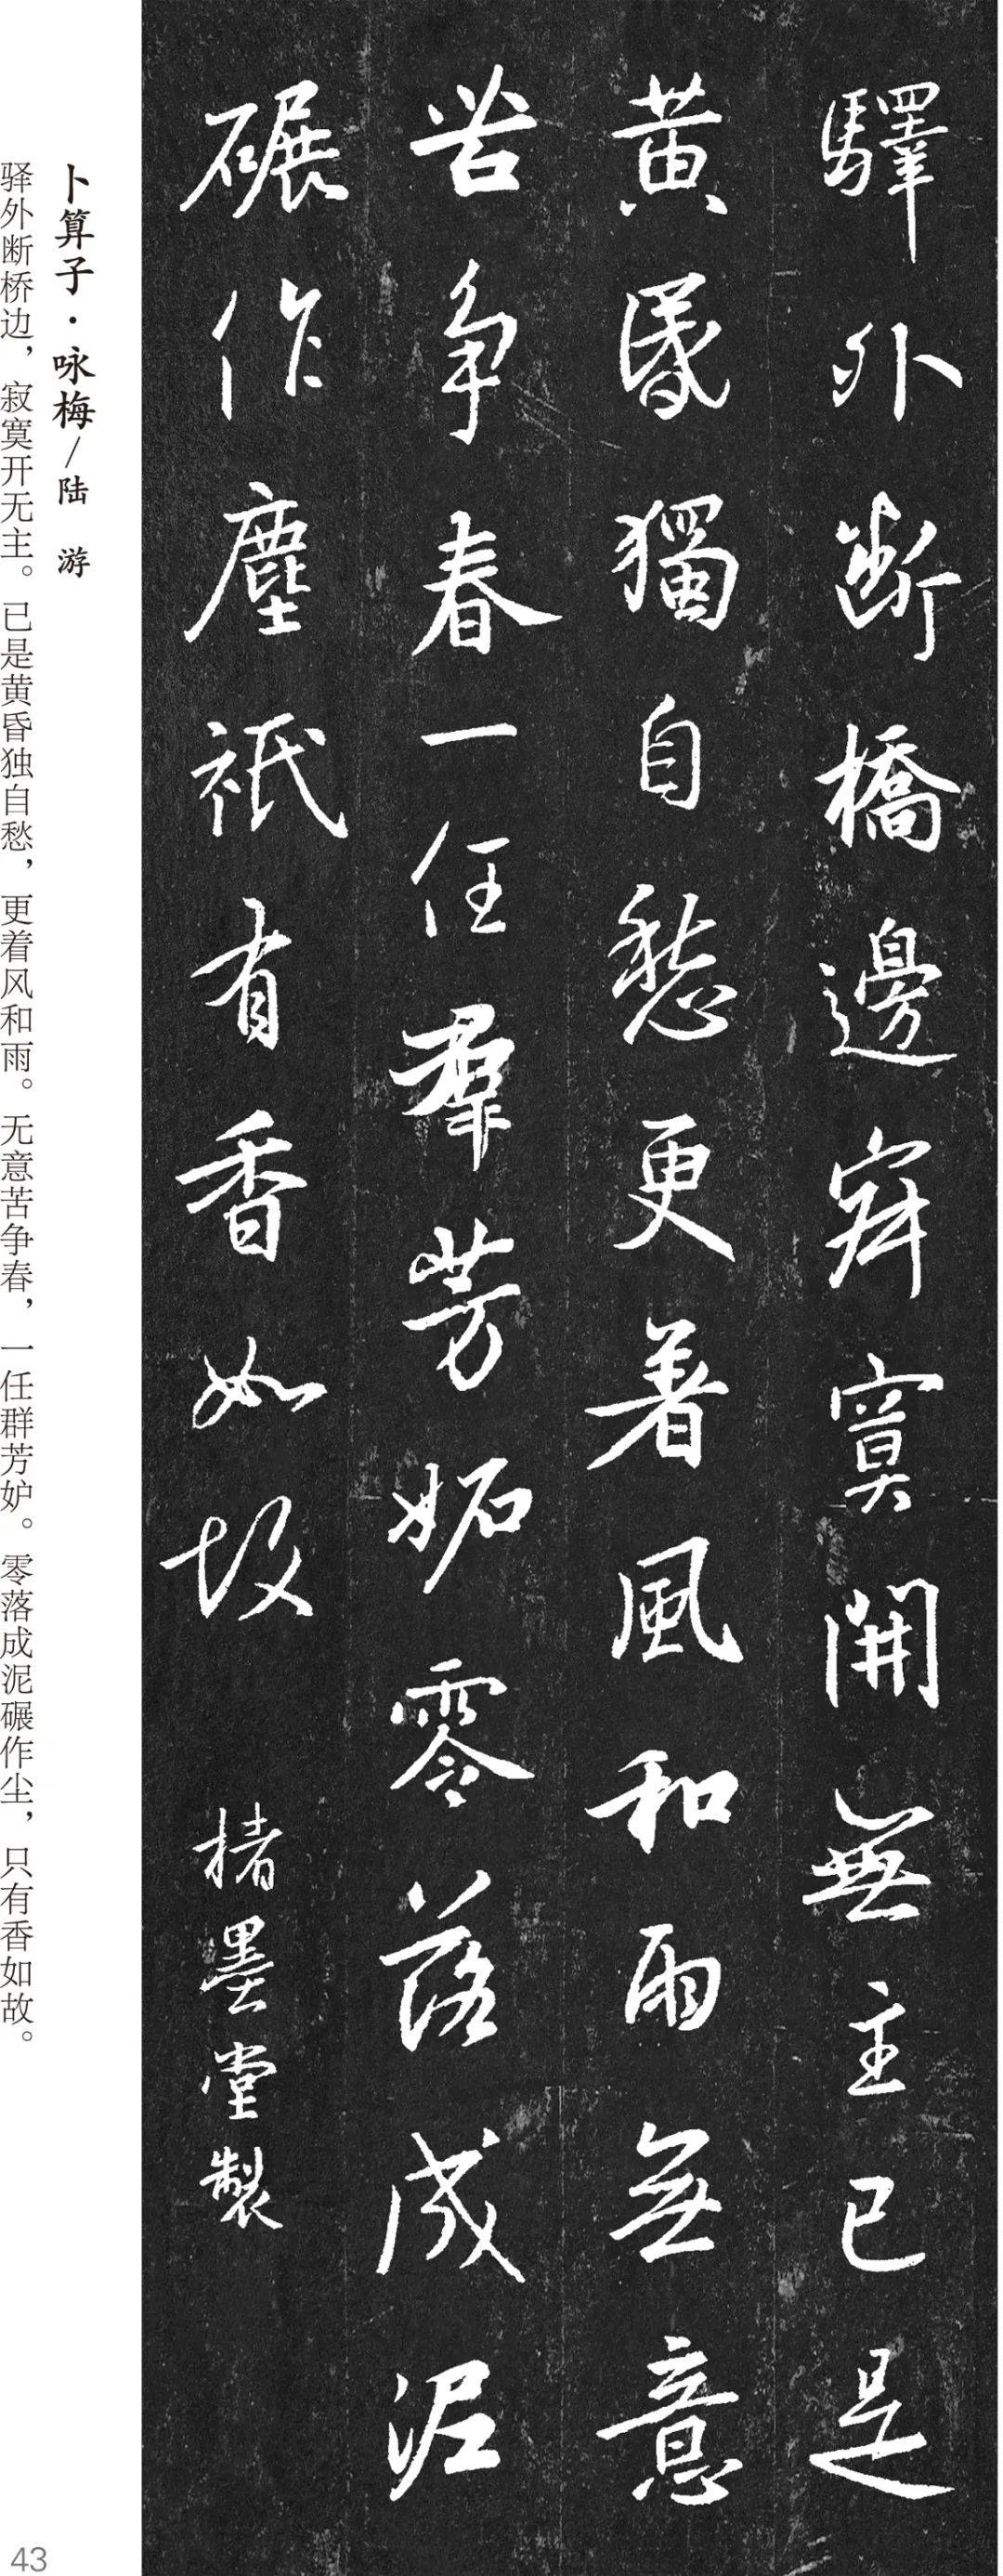 驛外断橋邊寂寞開無主已是
黄昏獨自愁更著風和雨無意
苦争春一任羣芳妬零落成泥
碾作塵祇有香如故
楮墨堂製
卜算子·咏梅/陆 游
驿外断桥边，寂寞开无主。已是黄昏独自愁，更着风和雨。无意苦争春，一任群芳妒。零落成泥碾作尘，只有香如故。
43